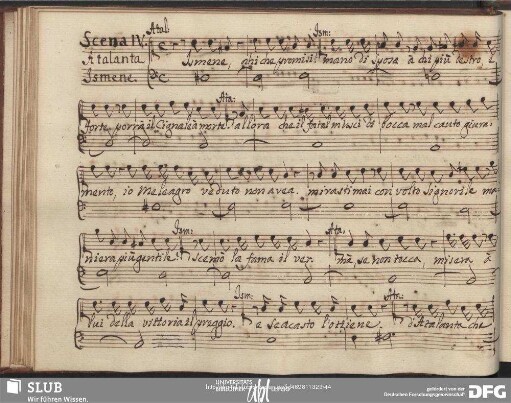 Atal: Ism:
Scena IV.
Atalanta
Ismene.
Ismene, ohi che promisi! mano di Sposa a chi più destro, e
Ata:
forte porrà il Cignale a morte. allora che il fatal mi uscì di bocca mal cauto giura-
mento, io Meleagro veduto non avea. mirasti mai con volto Signorile ma-
Ism: Ata:
niera più gentile? Scemò la fama il ver. mà se non tocca, misera à
Ism: Ata:
lui della vittoria il preggio. e se a caso l'ottiene. d'Atalanta che
SLUB
Wir führen Wissen.
UNIVERSITÄTS
BIBLIOTHEK
gefördert von der
Deutschen Forschungsgemeinschaft
DFG